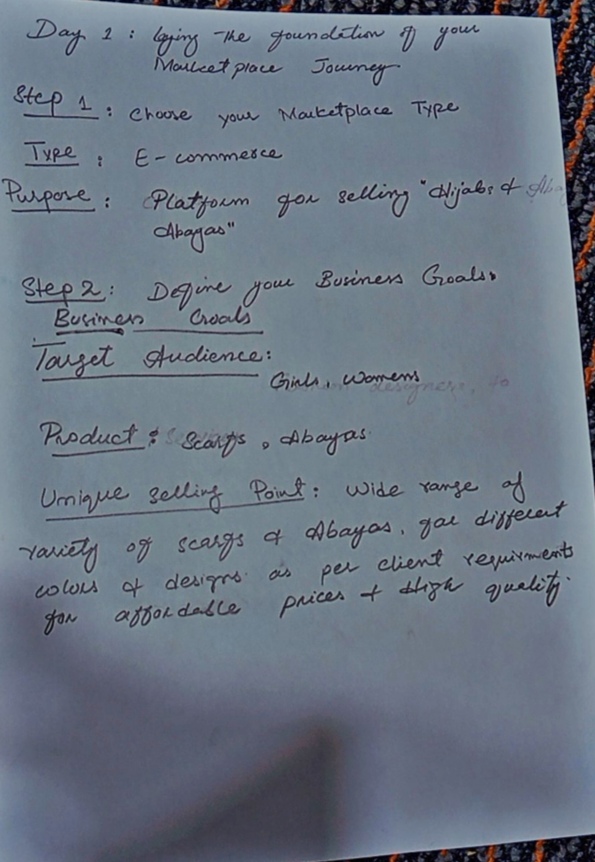 Day 1 : laying the foundation of your
Marketplace Journey
Step 1 : Choose your Marketplace Type
Type : E-commerce
Purpose : Platform for selling "Hijabs &
Abayas"
Step 2 : Define your Business Goals.
Business Goals
Target Audience :
Girls, Womens
Product : Scarfs, Abayas
Unique Selling Point : Wide range of
variety of scarfs & Abayas, for different
colors & designs as per client requirments
for affordable prices & High quality.